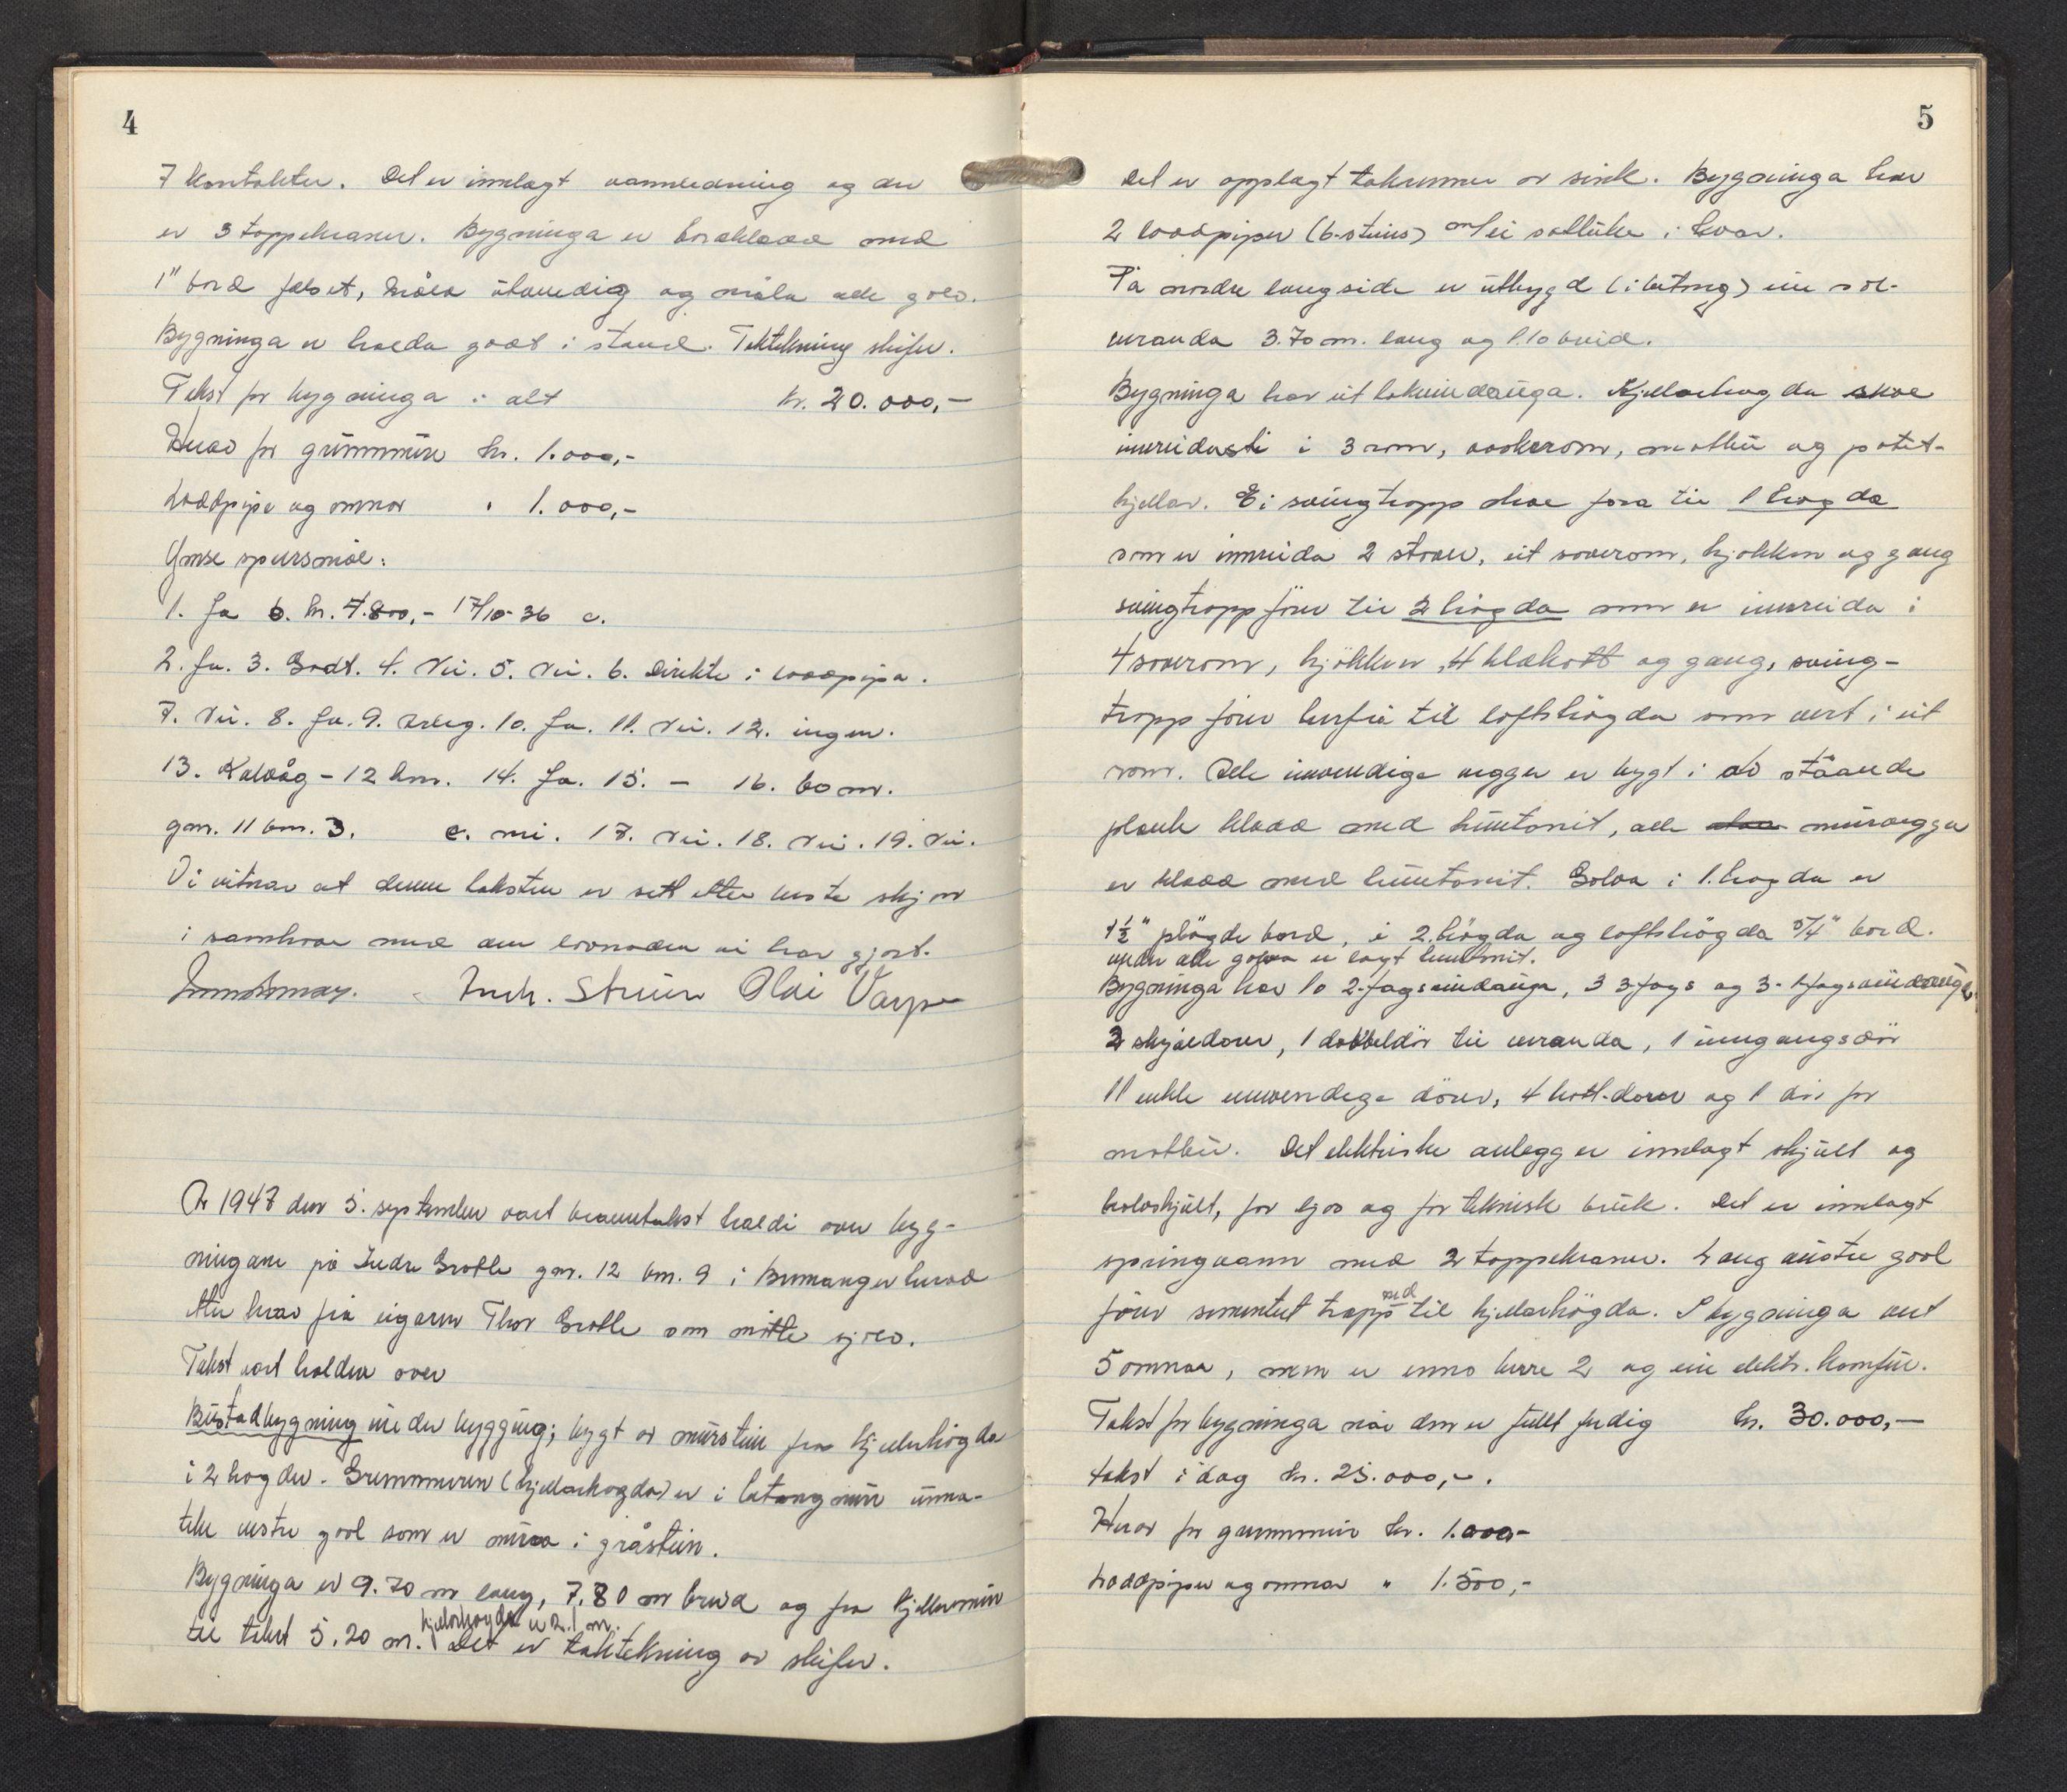 4
7 kontakter. Det er innlagt vannledning og der
er 3 tappekraner. Bygninga er bordkledd med
1" bord falset, måla utvendig og måla alle golv.
Bygninga er halda godt i stand. Taktekning skifer.
Takst for bygninga i alt kr. 20.000,-
Herav for grunnmur kr. 1.000,-
Loddpipe og omnar " 1.000,-
Ymse spursmål:
1. Ja b. kr. 7.800,- 17/10-36 c.
2. Ja. 3. Godt. 4. Nei. 5. Nei. 6. Direkte i loddpipa.
7. Nei. 8. Ja. 9. 10. Ja. 11. Nei. 12. ingen.
13. Kalvåg - 12 km. 14. Ja. 15. - 16. 60 m.
gnr. 11 bnr. 3. c. nei. 17. Nei. 18. Nei. 19. Nei.
Vi vitnar at denne taksten er sett etter beste skjøn
i samhøve med den lovnaden vi har gjort.
Olai Varpe
År 1947 den 5. september vart branntakst haldi over byg-
ningane på Indre Grotle gnr. 12 bnr. 9 i Bremanger herad
etter krav frå eigaren Thor Grotle som møtte sjølv.
Takst vart halden over
Bustadbygning under bygging; bygt av murstein fra kjellarhøgda
i 2 høgder. Grunnmuren (kjellarhøgda) er i betongmur unna-
teke vestre gavl som er mura i gråstein.
Bygninga er 9.70 m lang, 7,80 m breid og fra kjellarmur
kjellarhøgda er 2.1 m.
til taket 5,20 m. Det er taktekning av skifer.
5
Det er opplagt takrenner av sink. Bygninga har
2 loddpiper (6-steins) m/ei sotluke i kvar.
På nordre langside er utbygd (i betong) ein sol-
veranda 3.70 m. lang og 1.10 breid.
Bygninga har eit takvindauga. Kjellarhøgda skal
innreidast i 3 rom, vaskerom, matbu og potet-
kjellar. Ei svingtropp skal føra til 1 høgda
som er innreida 2 stover, eit soverom, kjøkken og gang
svingtropp fører til 2 høgda som er innreida i
4 soverom, kjøkken, 4 klekott og gang, sving-
tropp fører herfrå til loftshøgda som vert i eit
rom. Alle innvendige vegger er bygt i av ståande
plank kledd med huntonit, alle murvegger
er kledd med huntonit. Golva i 1. høgda er
1½" pløgde bord, i 2. høgda og loftshøgda 5/4" bord.
under alle golva er lagt huntonit.
Bygninga har 10 2-fagsvindauga, 3 3-fags og 3-1fagsvindauga,
2 skyvedører, 1 dobbeldør til veranda, 1 inngangsdør
11 enkle innvendige dører, 4 kott-dører og 1 dør for
matbu. Det elektriske anlegg er innlagt skjult og
halvskjult, for ljos og for teknisk bruk. Det er innlagt
springvann med 2 tappekraner. Lang austre gavl
ned
fører sementert trapp til kjellarhøgda. I bygninga vert
5 omnar, men er enno berre 2 og ein elektr. komfyr.
Takst for bygninga når den er fullt ferdig kr. 30.000,-
takst i dag kr. 25.000,-.
Herav for grunnmur kr. 1.000,-
Loddpiper og omnar " 1.500,-